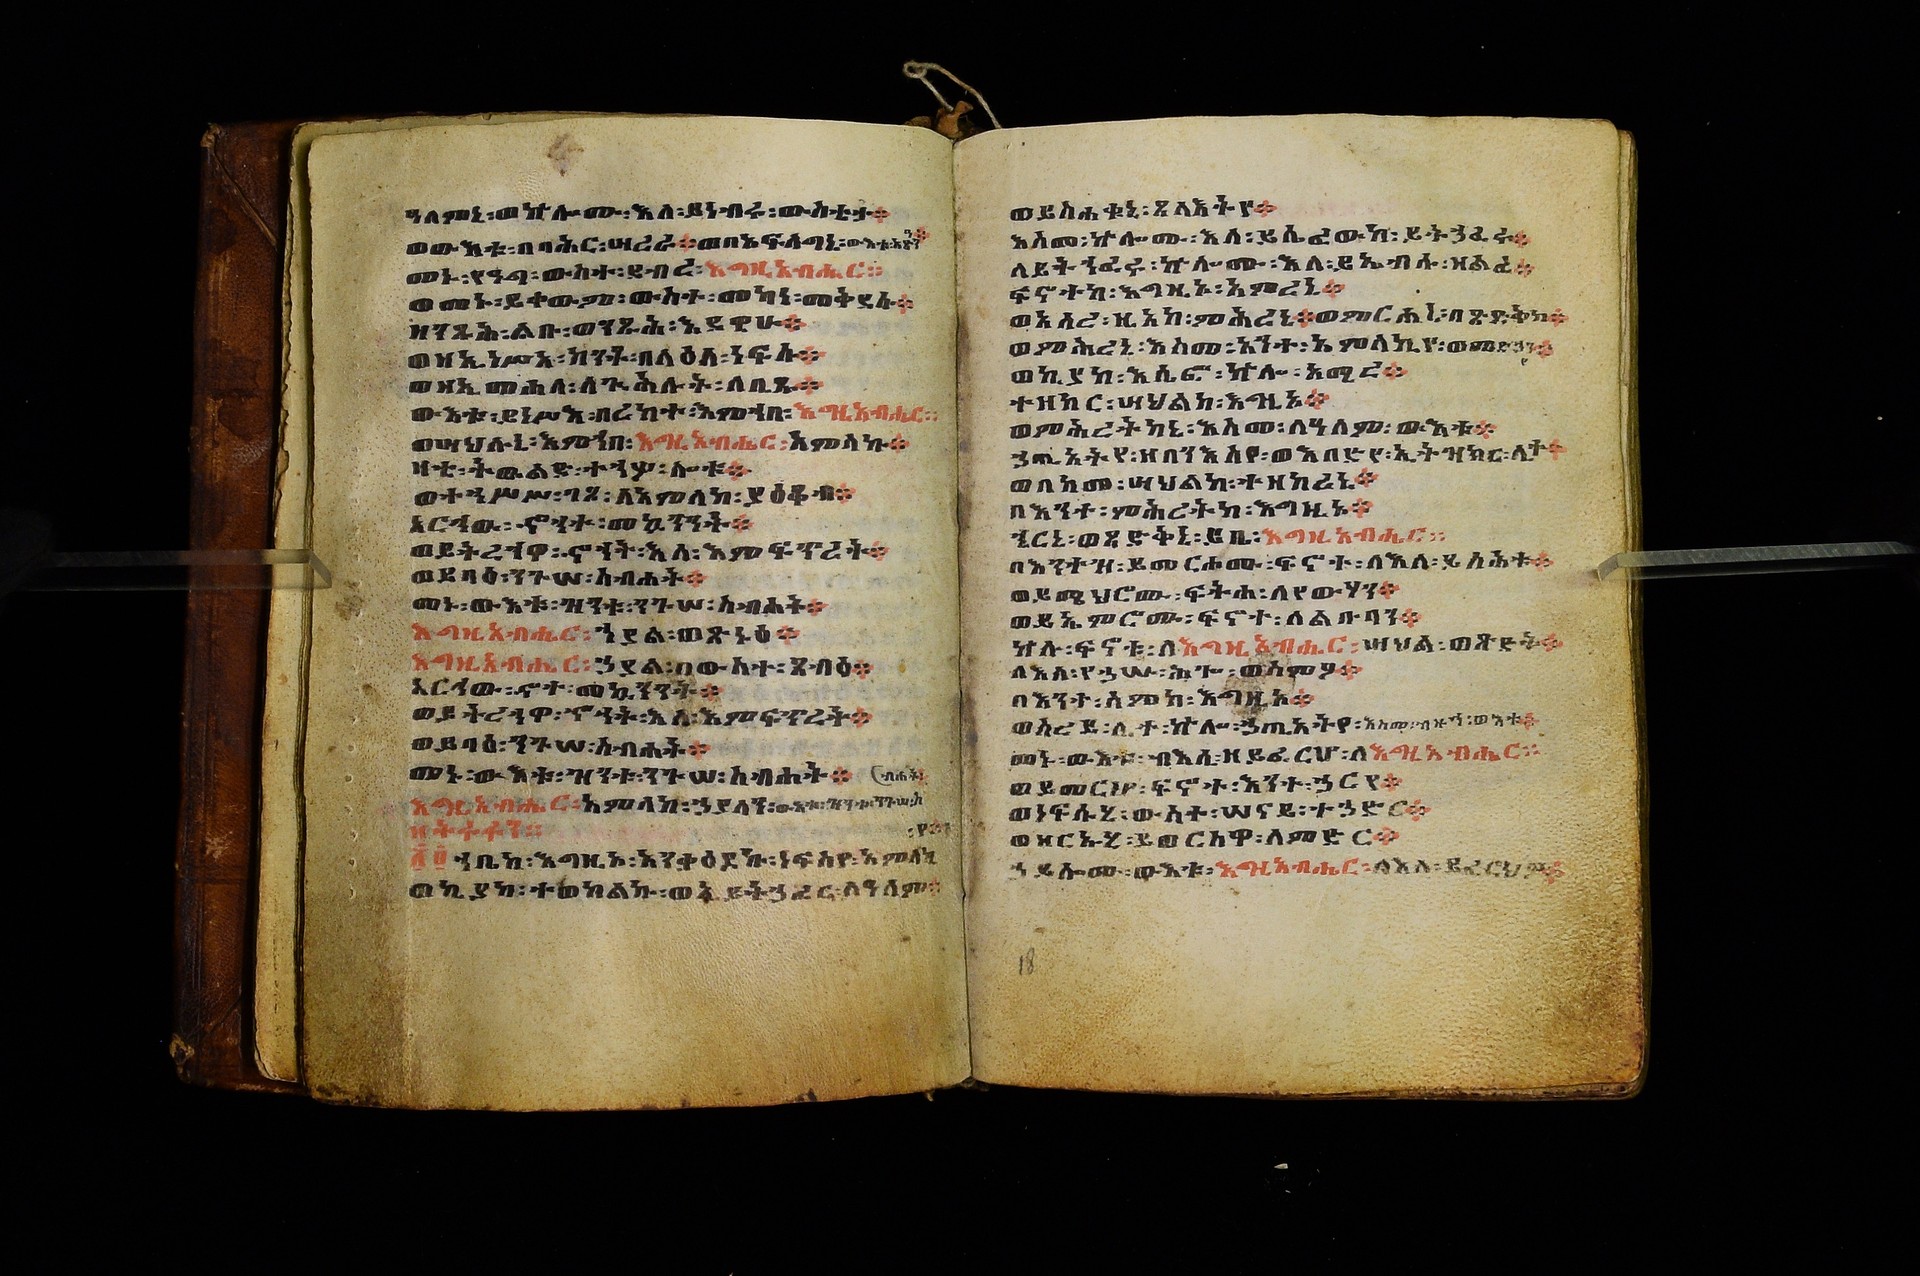 ዓለምኒ፡ወኵሎሙ፡እለ፡ይነብሩ፡ውስቴታ።
ወውእቱ፡በባሕር፡ሣረራ።ወበአፍላግኒ፡ውእቱ፡አጽንዓ።
መኑ፡የዓርግ፡ውስተ፡ደብረ፡እግዚአብሔር።
ወመኑ፡ይቀውም፡ውስተ፡መካነ፡መቅደሱ።
ዘንጹሕ፡ልቡ፡ወንጹሕ፡እደዊሁ።
ወዘኢነሥአ፡ከንቶ፡በላዕለ፡ነፍሱ።
ወዘኢመሐለ፡ለጕሕሉት፡ለቢጹ።
ውእቱ፡ይነሥእ፡በረከተ፡እምኀበ፡እግዚአብሔር።
ወሣህሉኒ፡እምኀበ፡እግዚአብሔር፡አምላኩ።
ዛቲ፡ትውልድ፡ተኀሦ፡ሎቱ።
ወተኀሥሥ፡ገጾ፡ለአምላከ፡ያዕቆብ።
አርኅው፡ኆኅተ፡መኳንንት።
ወይትረኀዋ፡ኆኅት፡እለ፡እምፍጥረት።
ወይባዕ፡ንጉሠ፡ስብሐት።
መኑ፡ውእቱ፡ዝንቱ፡ንጉሠ፡ስብሐት።
እግዚአብሔር፡ኀያል፡ወጽኑዕ።
እግዚአብሔር፡ኃያል፡በውስተ፡ጸብዕ።
አርኅው፡ኆኅተ፡መኳንንት።
ወይትረኀዋ፡ኆኅት፡እለ፡እምፍጥረት።
ወይባዕ፡ንጉሠ፡ስብሐት።
መኑ፡ውእቱ፡ዝንቱ፡ንጉሠ፡ስብሐት። ብሐት፡
እግዚአብሔር፡አምላከ፡ኃያላን፡ውእቱ፡ዝንቱ፡ንጉሠ፡ስ
፳፬ ኀቤከ፡እግዚኦ፡አንቃዕደኩ፡ነፍስየ፡አምላኪ
ወኪያከ፡ተወከልኩ፡ወኢይትኃፈር፡ለዓለም።
ወይስሐቁኒ፡ጸላእትየ።
እስመ፡ኵሎሙ፡እለ፡ይሴፈውከ፡ኢይትኃፈሩ።
ለይትኀፈሩ፡ኵሎሙ፡እለ፡ይኤብሱ፡ዘልፈ።
ፍኖተከ፡እግዚኦ፡አምረኒ።
ወአሰረ፡ዚአከ፡ምሕረኒ።ወምርሐኒ፡በጽድቅከ።
ወምሕረኒ፡እስመ፡አንተ፡አምላኪየ፡ወመድኃኒየ።
ወኪያከ፡እሴፎ፡ኵሎ፡አሚረ።
ተዘከር፡ሣህልከ፡እግዚኦ።
ወምሕረትከኒ፡እስመ፡ለዓለም፡ውእቱ።
ኃጢአትየ፡ዘበንእስየ፡ወእበድየ፡ኢትዝክር፡ሊተ።
ወበከመ፡ሣህልከ፡ተዘከረኒ።
በእንተ፡ምሕረትከ፡እግዚኦ።
ኄርኒ፡ወጻድቅኒ፡ይቤ፡እግዚአብሔር።
በእንተዝ፡ይመርሖሙ፡ፍኖተ፡ለእለ፡ይስሕቱ።
ወይሜህሮሙ፡ፍትሐ፡ለየውሃን።
ወይኤምሮሙ፡ፍኖተ፡ለልቡባን።
ኵሉ፡ፍኖቱ፡ለእግዚአብሔር፡ሣህል፡ወጽድቅ።
ለእለ፡የኃሡ፡ሕጎ፡ወስምዖ።
በእንተ፡ስምከ፡እግዚኦ።
ወስረይ፡ሊተ፡ኵሎ፡ኃጢአትየ፡እስመ፡ብዙኅ፡ውእቱ።
መኑ፡ውእቱ፡ብእሲ፡ዘይፈርሆ፡ለእግዚአብሔር።
ወይመርሖ፡ፍኖተ፡እንተ፡ኃርየ።
ወነፍሱሂ፡ውስተ፡ሠናይ፡ተኃድር።
ወዘርኡሂ፡ይወርስዋ፡ለምድር።
ኃይሎሙ፡ውእቱ፡እግዚአብሔር፡ለእለ፡ይፈርህዎ።
18